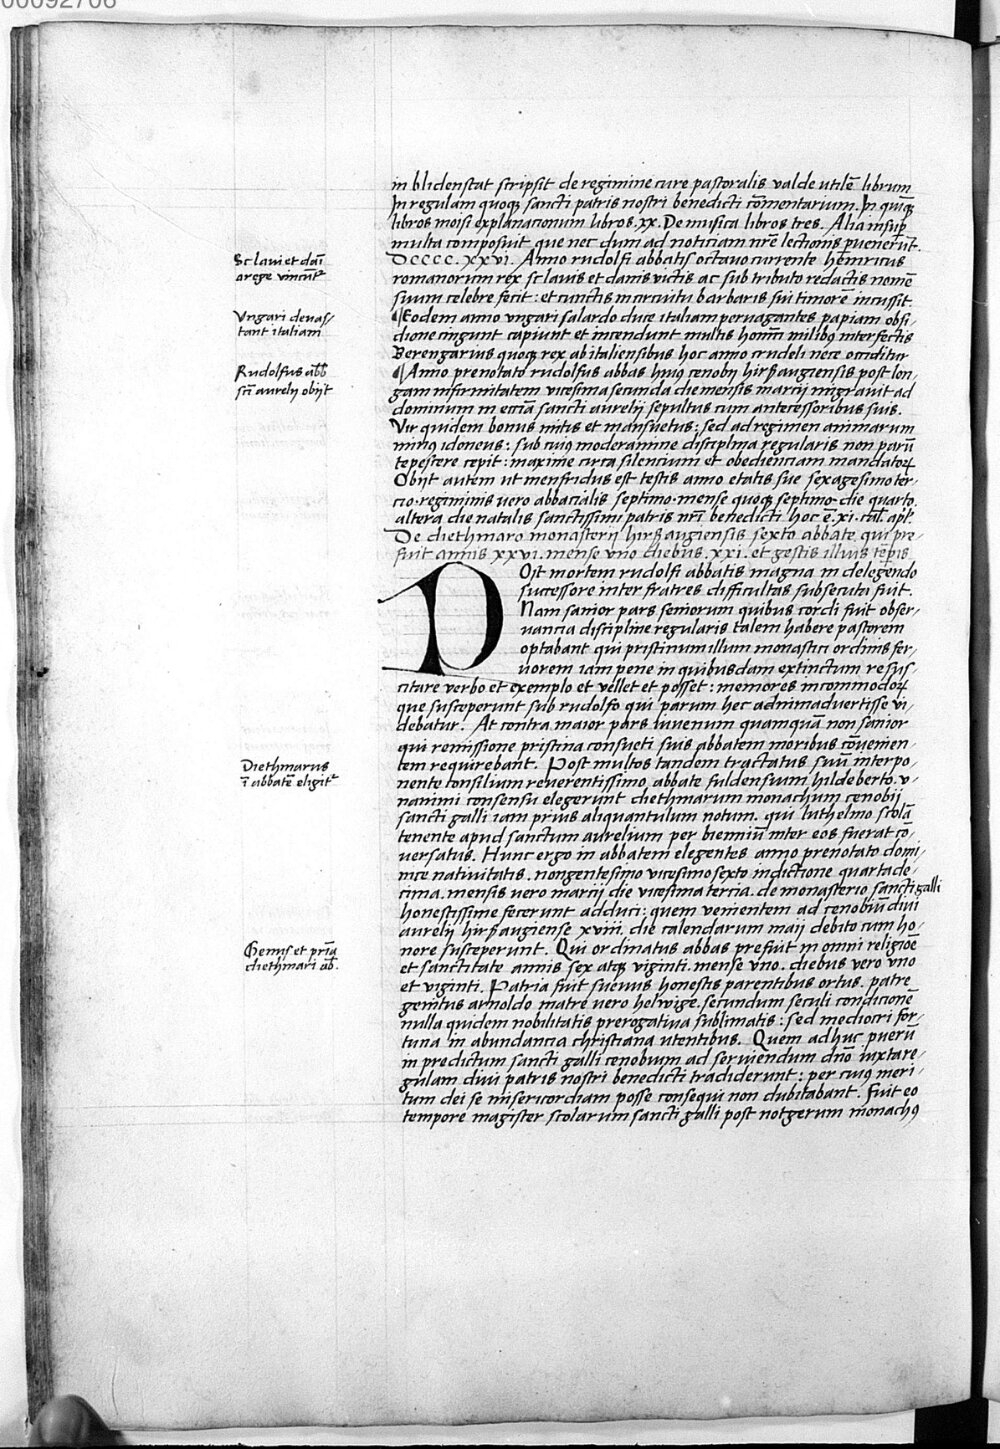 00092706
in blidenstat scripsit de regimine cure pastoralis valde utilē librum
In regulam quoqꝫ sancti patris nostri benedicti cōmentarium. In quinqꝫ
libros moisi explanacionum libros .xx. De musica libros tres. Alia insup̄
multa composuit que nec dum ad noticiam nr̄e lectionis ꝑuenerūt.
DCCCC.XXVI. Anno rudolfi abbatis octavo currente heinricus
Sclavi et dāi
romanorum rex sclavis et danis victis ac sub tributo redactis nomē
arege vincūtᷣ
suum celebre fecit: et cunctis in circuitu barbaris sui timorē incussit.
Vngari devas/
¶Eodem anno vngari salardo duce italiam pervagantes papiam obsi/
tant italiam
dione cingunt capiunt et incendunt multis hom̄i milibꝯ interfectis
Berengarius quoqꝫ rex ab italiensibus hoc anno crudeli nece occiditur
Rudolfus abb̄
¶Anno prenotato rudolfus abbas huiꝯ cenobij hirßaugiensis post lon/
sc̄i aurelij obijt
gam infirmitatem vicesima secunda die mensis marcij migravit ad
dominum in ecc̄ia sancti aurelij sepultus cum antecessoribus suis.
Vir quidem bonus mitis et mansuetus: sed ad regimen animarum
minꝯ idoneus: sub cuiꝯ moderamine disciplina regularis non parū
tepescere cepit: maxime circa silencium et obedienciam mandatoꝝ
Obijt autem ut menfridus est testis anno etatis sue sexagesimoter/
cio. regiminis vero abbacialis septimo. mense quoqꝫ septimo. die quarto.
altera die natalis sanctissimi patris nr̄i benedicti hoc ē .xi. cal̄. apl̄.
De diethmaro monasterij hirßaugiensis sexto abbate qui pre/
fuit annis xxvi. mense vno diebus .xxi. et gestis illius tēpis
POst mortem rudolfi abbatis magna in delegendo
successore inter fratres difficultas subsecuta fuit.
Nam sanior pars seniorum quibus cordi fuit obser/
vancia discipline regularis talem habere pastorem
optabant qui pristinum illum monastici ordinis fer/
vorem iam pene in quibusdam extinctum resus/
citare verbo et exemplo et vellet et posset: memores incommodoꝝ
que susceperunt sub rudolfo qui parum hec adnimadvertisse vi/
debatur. At contra maior pars iuvenum quamquā non sanior
qui remissione pristina consueti suis abbatem moribus cōvenien/
Diethmarus
tem requirebant. Post multos tandem tractatus suū interpo/
ī abbatē eligitᷣ
nente consilium reverentissimo abbate fuldensium hildeberto. v/
nanimi consensu elegerunt diethmarum monachum cenobij
sancti galli iam prius aliquantulum notum. qui luthelmo scolā
tenente apud sanctum aurelium per bienniū inter eos fuerat cō/
versatus. Hunc ergo in abbatem elegentes anno prenotato domi/
nice nativitatis. nongentesimo vicesimo sexto indictione quartade/
cima. mensis vero marcij die vicesima tercia. de monasterio sancti galli
honestissime fecerunt adduci: quem venientem ad cenobiū divi
aurelij hirßaugiense xviii. die calendarum maij debito cum ho/
Genus et pr̄ia
nore susceperunt. Qui ordinatus abbas prefuit in omni religioē
diethmari ab̄.
et sanctitate annis sex atqꝫ viginti. mense vno. diebus vero vno
et viginti. Patria fuit suevus honestis parentibus ortus. patre
genitus arnoldo matre vero helwige. secundum seculi condicionē
nulla quidem nobilitatis prerogativa sublimatis: sed mediocri for/
tuna in abundancia christiana utentibus. Quem adhuc puerū
in predictum sancti galli cenobium ad serviendum dn̄o iuxta re/
gulam divi patris nostri benedicti tradiderunt: per cuiꝯ meri/
tum dei se misericordiam posse consequi non dubitabant. Fuit eo
tempore magister scolarum sancti galli post notgerum monachꝯ